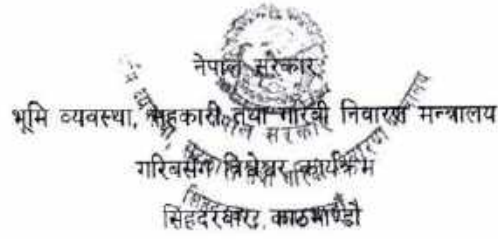 नेपाल सरकार
भूमि व्यवस्था, सहकारी तथा गरिबी निवारण मन्त्रालय
गरिबसँग विश्वेश्वर कार्यक्रम
सिंहदरबार, काठमाण्डौ